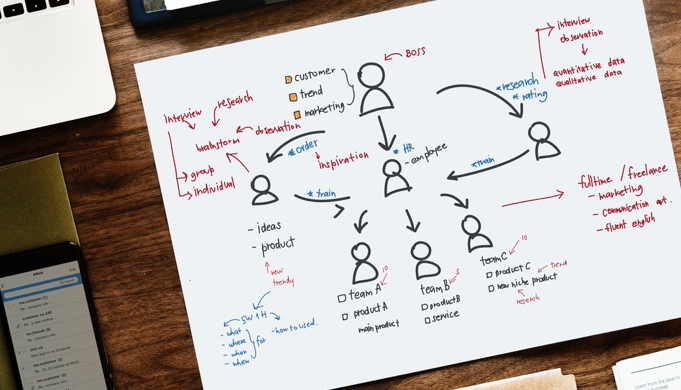 BOSS
interview
observation
quantitative data
qualitative data
customer
trend
marketing
*research
*rating
interview
research
observation
brainstorm
group
individual
*order
inspiration
*HR
- employee
*train
*train
fulltime / freelance
- marketing
- communication art.
- fluent english
- ideas
- product
new
trendy
5W1H
- what
- where
- when
for
- how to used.
10
team A
product A
main product
5
team B
product B
service
10
team C
product C
new niche product
trend
Inbox